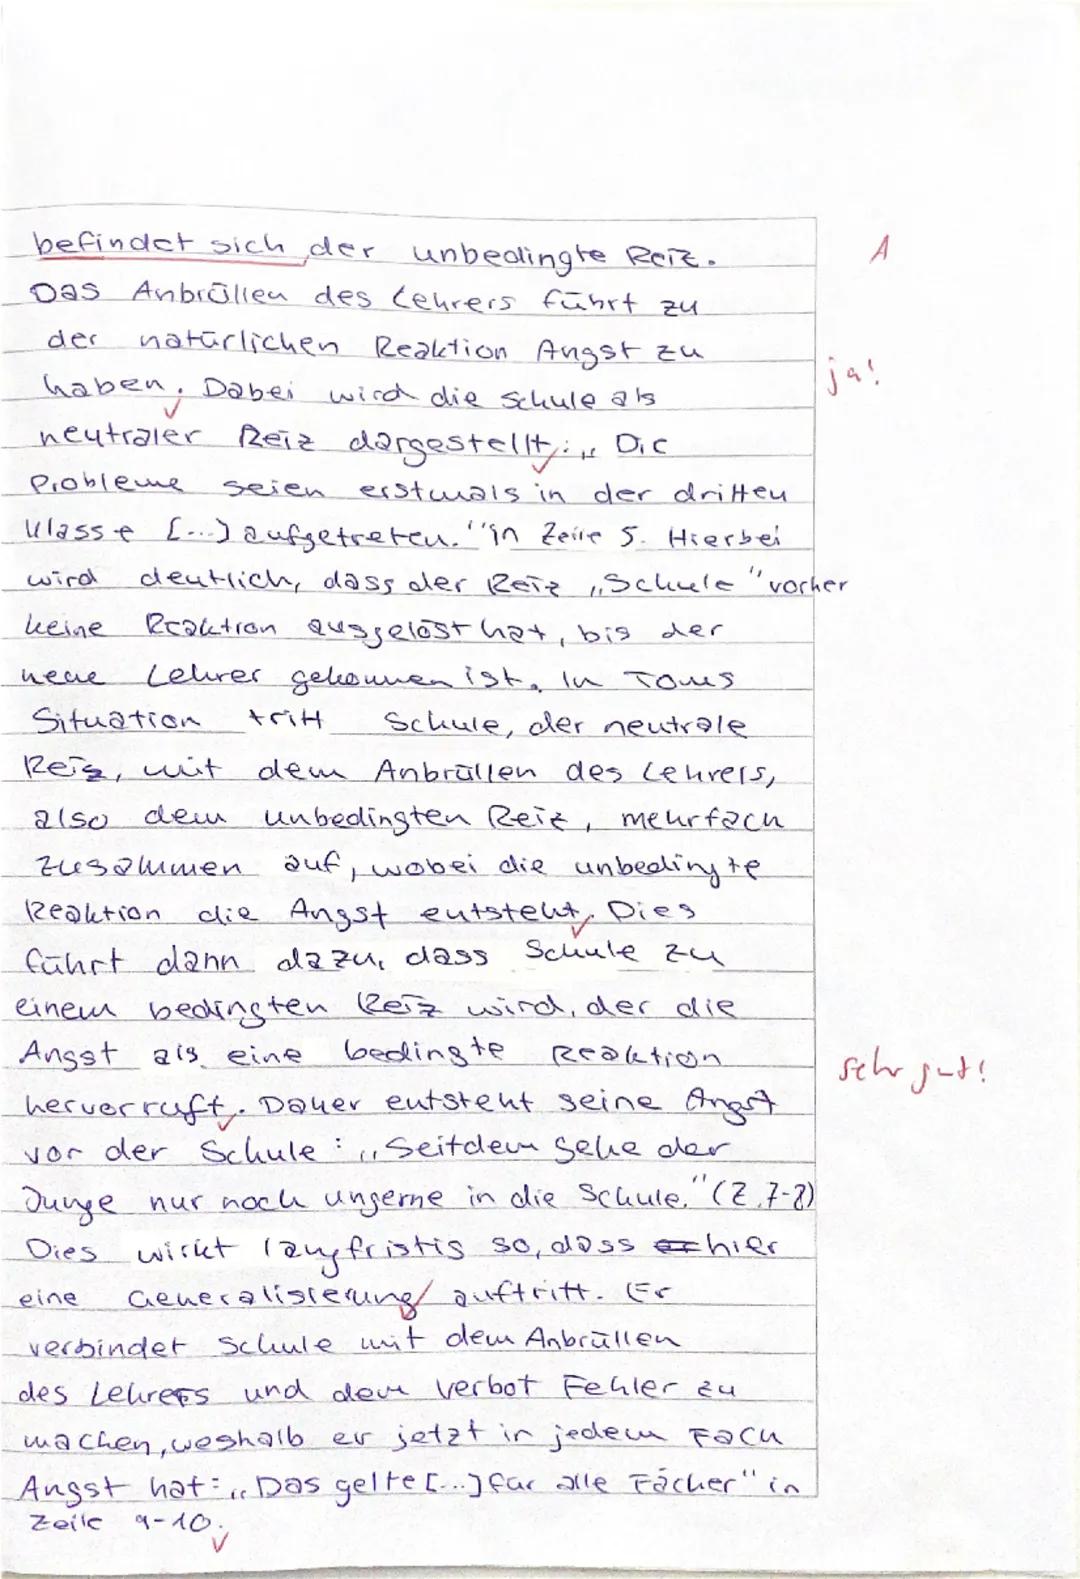 befindet sich der unbedingte Reiz.
A
Das Anbrüllen des Lehrers führt zu
der natürlichen Reaktion Angst zu
ja!
haben. Dabei wird die Schule als
neutraler Reiz dargestellt: „Die
Probleme seien erstmals in der dritten
Klasse [...] aufgetreten." in Zeile 5. Hierbei
wird deutlich, dass der Reiz „Schule" vorher
keine Reaktion ausgelöst hat, bis der
neue Lehrer gekommen ist. In Toms
Situation tritt Schule, der neutrale
Reiz, mit dem Anbrüllen des Lehrers,
also dem unbedingten Reiz, mehrfach
zusammen auf, wobei die unbedingte
Reaktion die Angst entsteht. Dies
führt dann dazu, dass Schule zu
einem bedingten Reiz wird, der die
Angst als eine bedingte Reaktion
sehr gut!
hervorruft. Daher entsteht seine Angst
vor der Schule: „Seitdem gehe der
Junge nur noch ungerne in die Schule." (Z. 7-8)
Dies wirkt langfristig so, dass hier
eine Generalisierung auftritt. Er
verbindet Schule mit dem Anbrüllen
des Lehrers und dem Verbot Fehler zu
machen, weshalb er jetzt in jedem Fach
Angst hat: „Das gelte [...] für alle Fächer" in
Zeile 9-10.